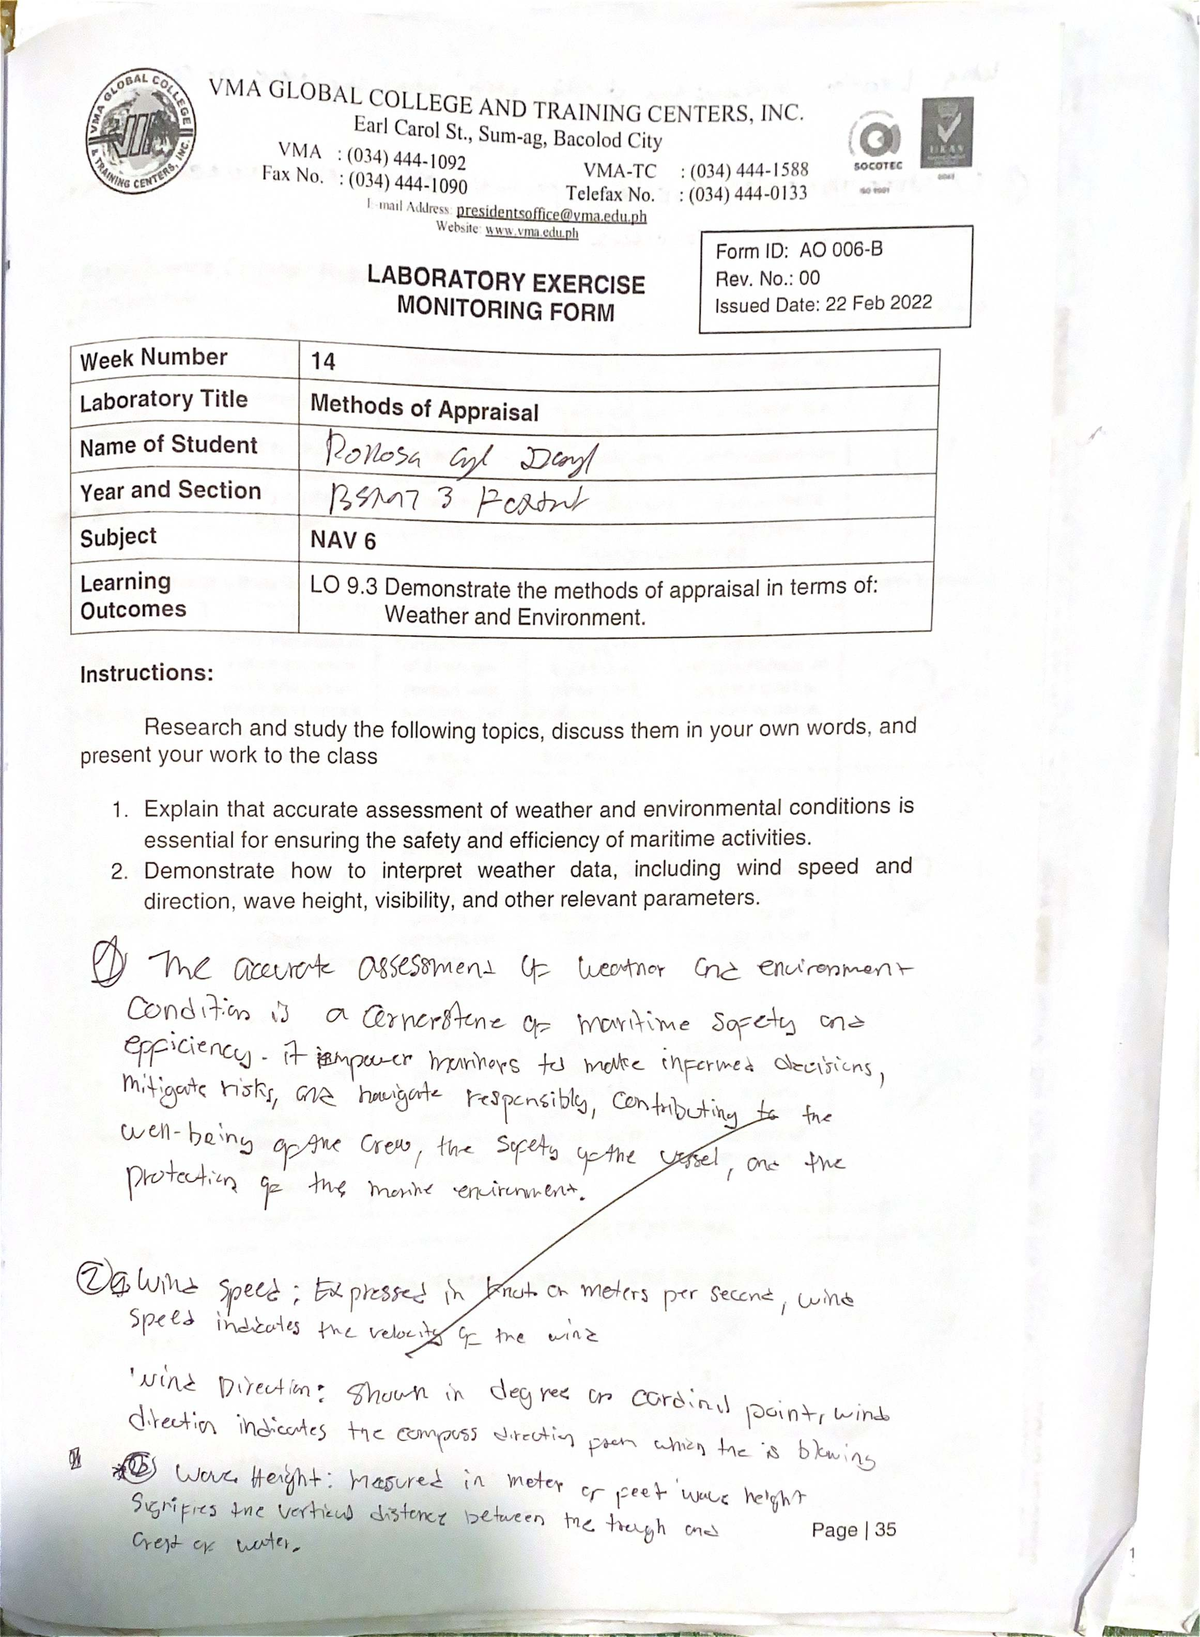 VMA GLOBAL COLLEGE
& TRAINING CENTERS, INC.
VMA GLOBAL COLLEGE AND TRAINING CENTERS, INC.
Earl Carol St., Sum-ag, Bacolod City
VMA : (034) 444-1092 VMA-TC : (034) 444-1588
Fax No. : (034) 444-1090 Telefax No. : (034) 444-0133
E-mail Address: presidentsoffice@vma.edu.ph
Website: www.vma.edu.ph
SOCOTEC
ISO 9001
UKAS
LABORATORY EXERCISE
MONITORING FORM
Form ID: AO 006-B
Rev. No.: 00
Issued Date: 22 Feb 2022
Week Number 14
Laboratory Title Methods of Appraisal
Name of Student
Year and Section BSMT 3
Subject NAV 6
Learning Outcomes LO 9.3 Demonstrate the methods of appraisal in terms of:
Weather and Environment.
Instructions:
Research and study the following topics, discuss them in your own words, and
present your work to the class
1. Explain that accurate assessment of weather and environmental conditions is
essential for ensuring the safety and efficiency of maritime activities.
2. Demonstrate how to interpret weather data, including wind speed and
direction, wave height, visibility, and other relevant parameters.
1 The accurate assessment of weather and environment
condition is a cornerstone of maritime safety and
efficiency. it empower mariners to make informed decisions,
mitigate risks, and navigate responsibly, contributing to the
well-being of the crew, the safety of the vessel, and the
protection of the marine environment.
2 a Wind speed; Expressed in knot or meters per second, wind
speed indicates the velocity of the wind
Wind Direction: Shown in degree or cardinal point, wind
direction indicates the compass direction from which the is blowing
b Wave Height: Measured in meter or feet wave height
Signifies the vertical distance between the trough and
Crest of water.
Page | 35
1